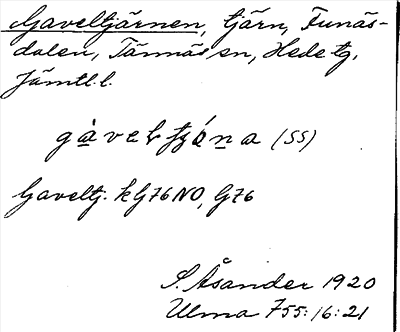 Gaveltjärnen, tjärn, Funäs-
dalen, Tännäs sn, Hede tg,
Jämtl. l.
(SS)
Gaveltj. kG76NO, G76
S. Åsander 1920
Ulma 755:16:21